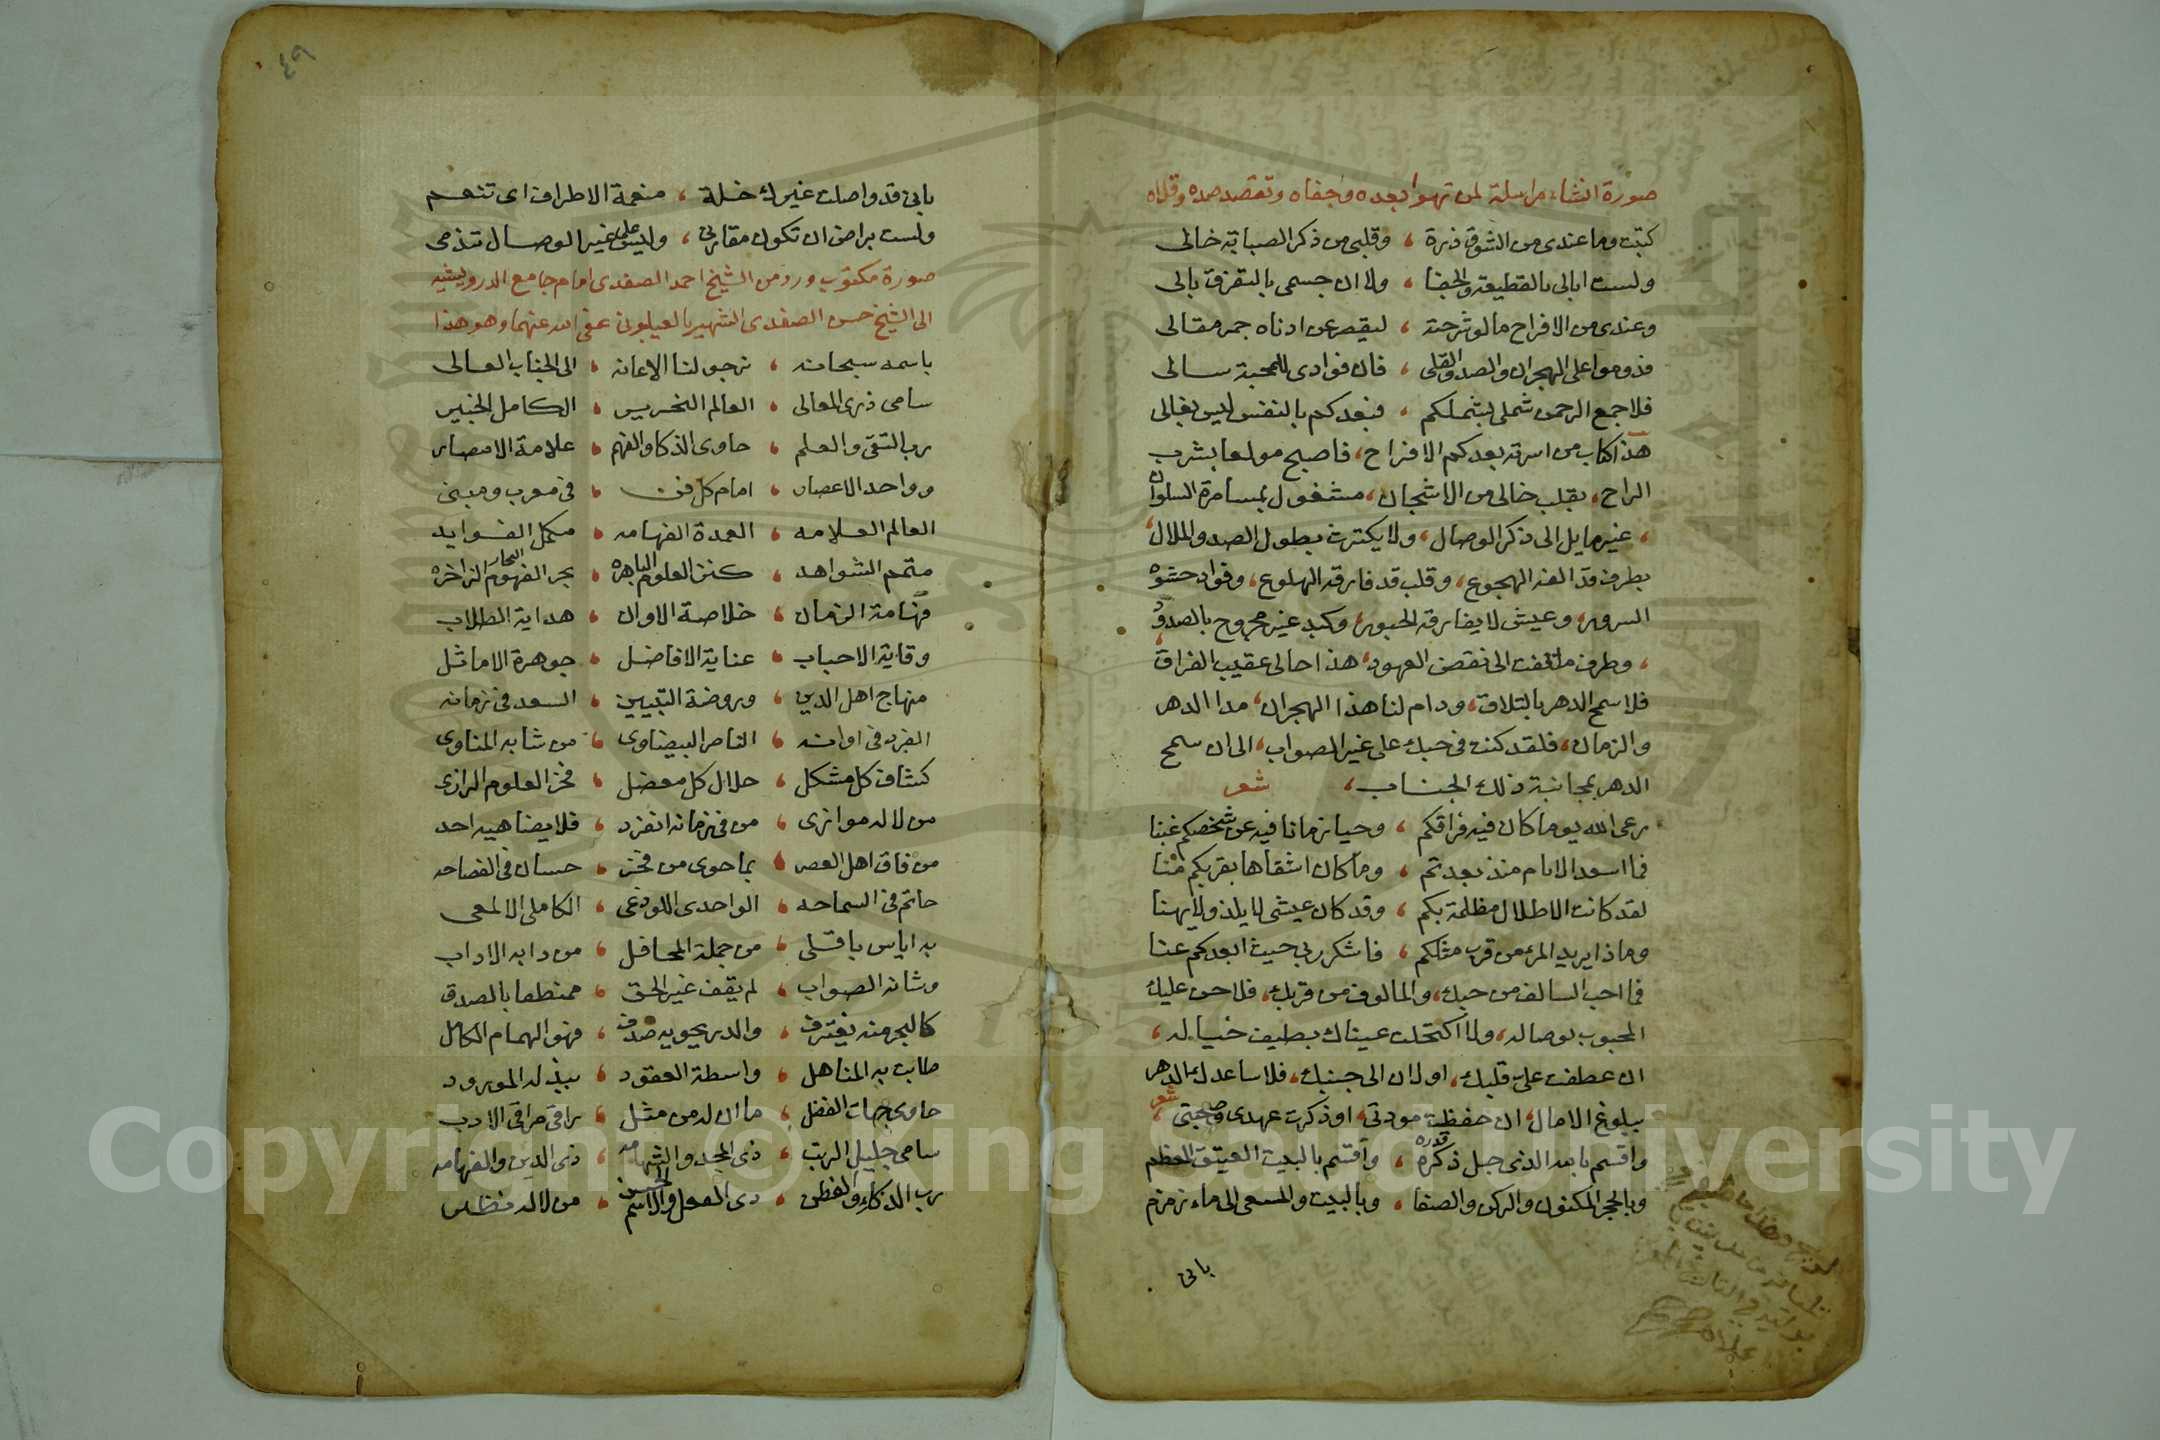 صورة انشاء مراسلة لمن تهوا بعده وجفاه وتقصد صده وقلاه
كتبت وما عندى من الشوق ذرة ، وقلبى من ذكر الصبابة خالى
ولست ابالى بالقطيعة والجفا ، ولا ان جسمى بالتفرق بالى
وعندى من الافراح ما لو شرحته ، ليقصر عن ادناه جم مقالى
فدوموا على الهجران والصد والقلى ، فان فوادى للمحبة سالى
فلا جمع الرحمن شملى بشملكم ، فبعدكم بالنفس ليس بغالى
هذا كتاب من اسرته بعدكم الافراح، فاصبح مولعا بشرب
الراح، بقلب خالى من الاشجان، مشغول بمسامرة السلوان
، غير مايل الى ذكر الوصال، ولا يكترث بطول الصد والملال،
بطرف قد الفه الهجوع، وقلب قد فارقه الهلوع، وفواد حشوه
السرور، وعيش لا يفارقه الحبور، وكبد غير مجروح بالصدود
، وطرف ملتفت الى نقض العهود، هذا حالى عقيب الفراق
فلا سمح الدهر بالتلاق، ودام لنا هذا الهجران، مدا الدهر
والزمان، فلقد كنت فى حبك على غير الصواب، الى ان سمح
الدهر بمجانبة ذلك الجناب، شعر
رعى الله يوما كان فيه فراقكم ، وحيا زمانا فيه عن شخصكم غبنا
فما اسعد الايام منذ بعدتم ، وما كان اشقاها بقربكم منا
لقد كانت الاطلال مظلمة بكم ، وقد كان عيشى لا يلذ ولا يهنا
وماذا يريد المرء من قرب مثلكم ، فاشكر ربى حيث ابعدكم عنا
فما احب السالف من حبك، والمالوف من قربك، فلا حن عليك
المحبوب بوصاله، ولا اكتحلت عيناك بطيف خياله،
ان عطفت على قلبك، او لان الى جنبك، فلا ساعدك الدهر
ببلوغ الامال، ان حفظت مودتى، او ذكرت عهدى وصحبتى، شعر
واقسم بالله الذى جل ذكره قدره ، واقسم بالبيت العتيق المعظم
وبالحجر المكنون والركن والصفا ، وبالبيت والمسعى الى ماء زمزم
بانى
٤٩
بانى قد واصلت غيرك خلة ، منعمة الاطراف اى تنعم
ولست براض ان تكون مقاربى ، وليس على غير الوصال تندمى
صورة مكتوب ورد من الشيخ احمد الصفدى امام جامع الدرويشيه
الى الشيخ حسن الصفدى الشهير بالعيلبونى عفى الله عنهما وهو هذا
باسمه سبحانه ، نرجو لنا الاعانه ، الى الجناب العالى
سامى ذرى المعالى ، العالم النحرير ، الكامل الخبير
رب التقى والعلم ، حاوى الذكا والفهم ، علامة الامصار
وواحد الاعصار ، امام كل فن ، فى معرب ومبنى
العالم العلامه ، العمدة الفهامه ، مكمل الفوايد
متمم الشواهد ، كنز العلوم الباهره ، بحر الفهوم البحار الزاخره
فهامة الزمان ، خلاصة الاوان ، هداية الطلاب
وقاية الاحباب ، عناية الافاضل ، جوهرة الاماثل
منهاج اهل الدين ، وروضة التبيين ، السعد فى زمانه
الفرد فى اوانه ، الناصر البيضاوى ، من شابه المناوى
كشاف كل مشكل ، حلال كل معضل ، فخر العلوم الرازى
من لا له موازى ، من فى زمانه انفرد ، فلا يضاهيه احد
من فاق اهل العصر ، بما حوى من فخر ، حسان فى الفصاحه
حاتم فى السماحه ، الواحدى اللوذعى ، الكاملى الالمعى
به اياس باقلى ، من جملة المحافل ، من دابه الاداب
وشانه الصواب ، لم يقف غير الحق ، ممنطقا بالصدق
كالبحر منه يغترف ، والدر يحويه صدف ، فهو الهمام الكامل
طابت به المناهل ، واسطة العقود ، ببذله المورود
حاوى جهات الفضل ، ما ان له من مثل ، راقى مراقى الادب
سامى جليل الرتب ، ذى المجد والشهامه ، ذى الدين والفهامه
رب الذكاء والفطن ، ذى الفعل والاسم الحسن ، من لا له نظير